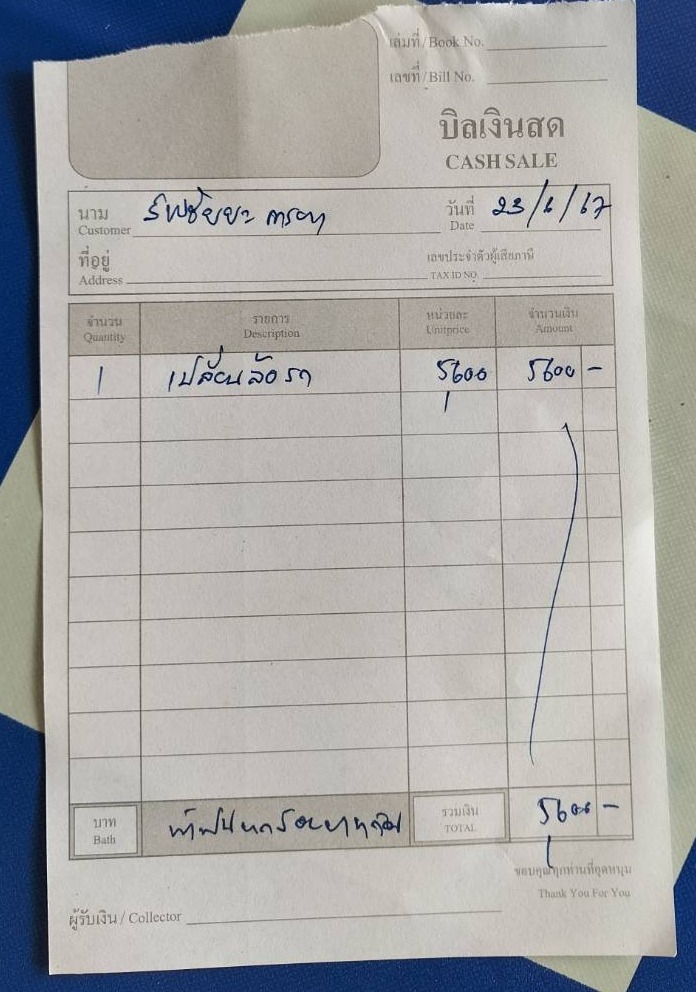 เล่มที่/Book No.
เลขที่/Bill No.
บิลเงินสด
CASH SALE
นาม
Customer
วันที่ 23/6/67
Date
ที่อยู่
Address
เลขประจำตัวผู้เสียภาษี
TAX ID NO.
จำนวน รายการ หน่วยละ จำนวนเงิน
Quantity Description Unitprice Amount
1 เปลี่ยนล้อรถ 5600 5600 -
บาท ห้าพันหกร้อยบาทถ้วน รวมเงิน 5600 -
Bath TOTAL
ขอบคุณทุกท่านที่อุดหนุน
Thank You For You
ผู้รับเงิน / Collector